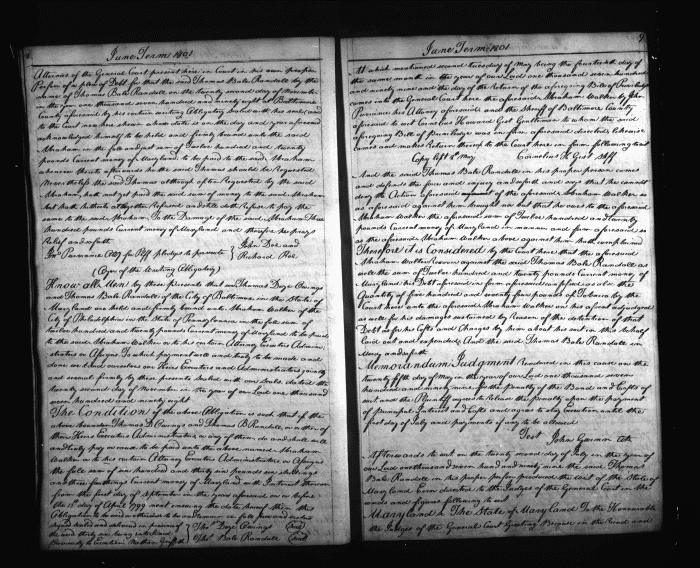 June Term 1801
Attornies of the General Court present here in Court in his own proper
Person of a plea of Debt for that the said Thomas Bale Randall by the
name of Thomas Bale Randall on the twenty second day of November
in the year one thousand seven hundred and ninety eight at Baltimore
County aforesaid by his certain writing Obligatory sealed with his seal and
to the Court now here shewn whose date is on the day and year aforesaid
acknowledged himself to be held and firmly bound unto the said
Abraham in the full and just sum of Twelve hundred and twenty
pounds Current money of Maryland to be paid to the said Abraham
whenever therto afterwards he the said Thomas should be Requested
Nevertheless the said Thomas although often Requested by the said
Abraham, hath not yet paid the said sum of money to the said Abraham
but hath hitherto altogether Refused and still doth refuse to pay the
same to the said Abraham To the Damage of the said Abraham Three
hundred pounds Current money of Maryland and therefore he prays
Relief and so forth
Jno Purviance Atty for Plff pledges to prosecute } John Doe and
Richard Roe
(Copy of the Writing Obligatory)
Know all Men by these presents that we Thomas Deye Owings
and Thomas Bale Randall of the City of Baltimore in the State of
Maryland are held and firmly bound unto Abraham Walker of the
City of Philadelphia in the State of Pennsylvania in the full sum of
twelve hundred and twenty pounds Current money of Maryland to be paid
to the said Abraham Walker or to his certain Attorney Executors Admini-
strators or Assigns To which payment well and truly to be made and
done we bind ourselves our Heirs Executors and Administrators jointly
and severally firmly by these presents Sealed with our Seals dated the
twenty second day of November in the year of our Lord one thousand
seven hundred and ninety eight
The Condition of the above Obligation is such that if the
above bounden Thomas D Owings and Thomas B Randall or either of
them Heirs Executors Administrators or any of them do and shall well
and truly pay or cause to be paid unto the above named Abraham
Walker or to his certain Attorney Executors Administrators or Assigns
the full sum of six hundred and thirty pounds
and three farthings Current money of Maryland with Interest thereon
from the first day of September in the year aforesaid on or before
the 15th day of April 1799 next ensuing the date hereof then the
Obligation to be void
signed sealed and delivered in presence of } Thos Deye Owings (Seal)
Thos Bale Randall (Seal)
9
June Term 1801
At which mentioned second tuesday of May being the fourteenth day of
the same month in the year of our Lord one thousand seven hundred
and ninety nine and the day of the Return of the aforegoing
comes into the General Court here the aforesaid Abraham Walker by Jno
Purviance his Attorney aforesaid and the Sheriff of Baltimore County
aforesaid to wit Cornelius Howard Gist Gentleman to whom the said
aforegoing was in form aforesaid directed likewise
comes and makes Return thereof to the Court here in form following to wit
Copy left 8th May Cornelius H. Gist Shff
And the said Thomas Bale Randall in his proper person comes
and defends the force and injury and so forth and says that he cannot
deny the action aforesaid of the aforesaid Abraham Walker in
as aforesaid against him brought nor but that he owes to the aforesaid
Abraham Walker the aforesaid sum of Twelve hundred and twenty
pounds Current money of Maryland in manner and form aforesaid
as the aforesaid Abraham Walker above against him hath complained
Therefore it is Considered by the Court here that the aforesaid
Abraham Walker Recover against the said Thomas Bale Randall as
well the sum of Twelve hundred and twenty pounds Current money of
Maryland his Debt aforesaid in form aforesaid as also the
Quantity of five hundred and seventy five pounds of Tobacco by the
Court here unto the aforesaid Abraham Walker on his assent adjudged
as well for his damages sustained by Reason of the detention of that
Debt as for his Costs and Charges by him about his suit in this behalf
laid out and expended. And the said Thomas Bale Randall in
Mercy and so forth
Memorandum Judgment Rendered in this cause on the
twenty fifth day of May in the year of our Lord one thousand seven
hundred and ninety nine for the Penalty of the Bond and Costs of
suit and the Plaintiff agrees to Release the penalty upon the payment
of principal Interest and Costs and agrees to stay Execution until the
first day of July and payments if any to be allowed
Test John Gwinn Clk
Afterwards to wit on the twenty second day of July in the year of
our Lord one thousand seven hundred and ninety nine the said Thomas
Bale Randall in his proper person produced the writ of the State of
Maryland here directed to the Judges of the General Court in the
words and figures following to wit
Maryland Sc. The State of Maryland To the Honourable
the Judges of the General Court Greeting Because in the Record and